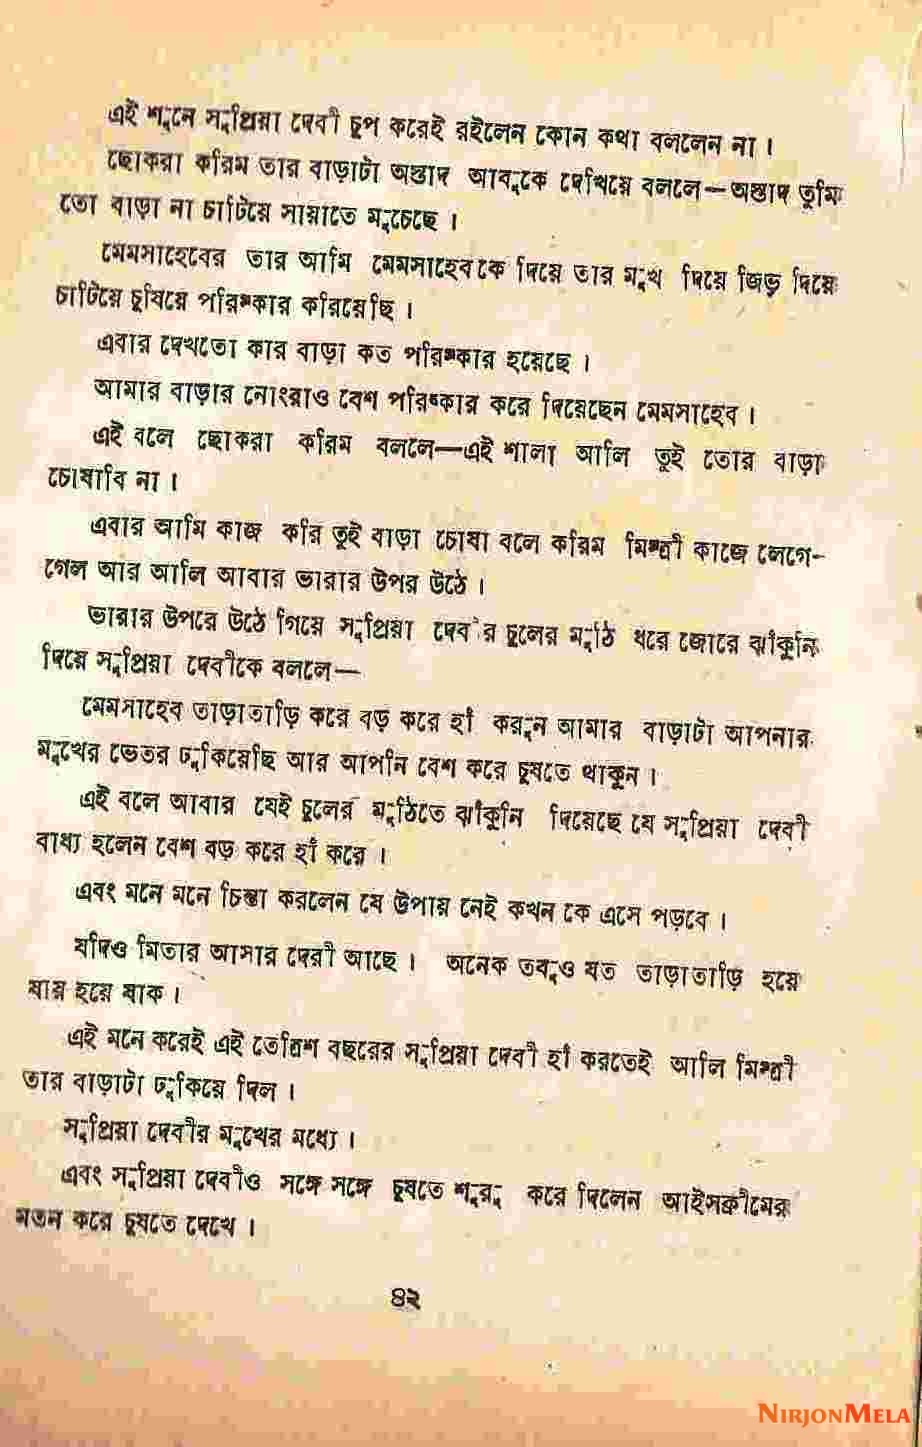 এই শুনে সুপ্রিয়া দেবী চুপ করেই রইলেন কোন কথা বললেন না।
ছোকরা করিম তার বাড়াটা অস্তাদ আবুকে দেখিয়ে বললে—অস্তাদ তুমি
তো বাড়া না চাটিয়ে সায়াতে মুচেছে।
মেমসাহেবের তার আমি মেমসাহেবকে দিয়ে তার মুখ দিয়ে জিভ্ দিয়ে
চাটিয়ে চুষিয়ে পরিষ্কার করিয়েছি।
এবার দেখতো কার বাড়া কত পরিষ্কার হয়েছে।
আমার বাড়ার নোংরাও বেশ পরিষ্কার করে দিয়েছেন মেমসাহেব।
এই বলে ছোকরা করিম বললে—এই শালা আলি তুই তোর বাড়া
চোষাবি না।
এবার আমি কাজ করি তুই বাড়া চোষা বলে করিম মিস্ত্রী কাজে লেগে-
গেল আর আলি আবার ভারার উপর উঠে।
ভারার উপরে উঠে গিয়ে সুপ্রিয়া দেবীর চুলের মুঠি ধরে জোরে ঝাঁকুনি
দিয়ে সুপ্রিয়া দেবীকে বললে—
মেমসাহেব তাড়াতাড়ি করে বড় করে হাঁ করুন আমার বাড়াটা আপনার
মুখের ভেতর ঢুকিয়েছি আর আপনি বেশ করে চুষতে থাকুন।
এই বলে আবার যেই চুলের মুঠিতে ঝাঁকুনি দিয়েছে যে সুপ্রিয়া দেবী
বাধ্য হলেন বেশ বড় করে হাঁ করে।
এবং মনে মনে চিন্তা করলেন যে উপায় নেই কখন কে এসে পড়বে।
যদিও মিতার আসার দেরী আছে। অনেক তবুও যত তাড়াতাড়ি হয়ে
যায় হয়ে যাক।
এই মনে করেই এই তেত্রিশ বছরের সুপ্রিয়া দেবী হাঁ করতেই আলি মিস্ত্রী
তার বাড়াটা ঢুকিয়ে দিল।
সুপ্রিয়া দেবীর মুখের মধ্যে।
এবং সুপ্রিয়া দেবীও সঙ্গে সঙ্গে চুষতে শুরু করে দিলেন আইসক্রীমের
মতন করে চুষতে দেখে।
৪২
NIRJONMELA